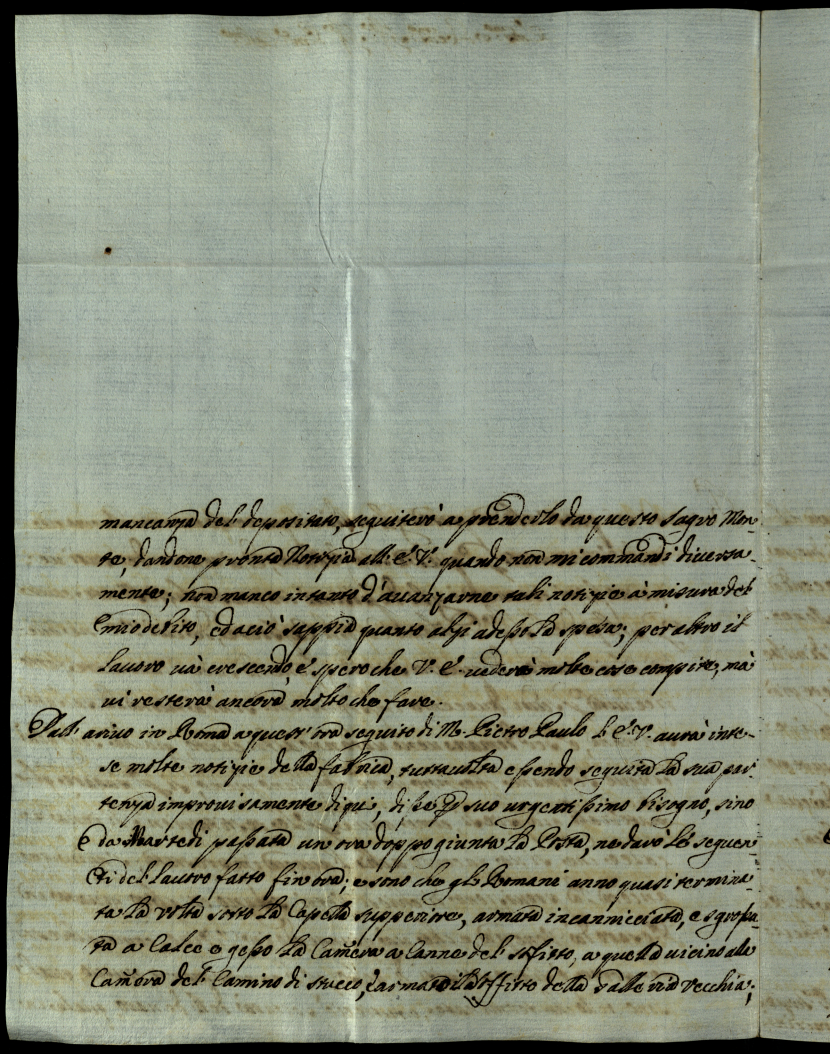 mancanza del depositato, seguiterò a prenderlo da questo Sagro Mon-
te, dandone pronta Notizia all'E.V. quando non mi commandi diversa-
mente; non manco intanto d'avanzarne tali notizie à misura del
mio debito, ed acciò sappia quanto alzi adesso la spesa; per altro il
lavoro và crescendo, e spero che V.E. vederà molte cose compire, mà
vi resterà ancora molto che fare.
Dall' arivo in Roma a quest' ora seguito di M. Pietro Paulo l'E.V. aurà inte-
se molte notizie della fabrica, tuttavolta essendo seguita la sua par-
tenza improvisamente di qui, suo urgentissimo bisogno, sino
da Martedi passata un ora doppo giunta la Posta, ne darò le seguen-
ti del lavoro fatto fin ora; e sono che gli Romani anno quasi termina-
ta la volta sotto la Capella supperiore, armata incannicciata, e sgrossa-
ta a Calce e gesso la Camera a Canne del soffitto, a quella vicino alla
Camera del Camino di stucco, armato il soffitto della vecchia;